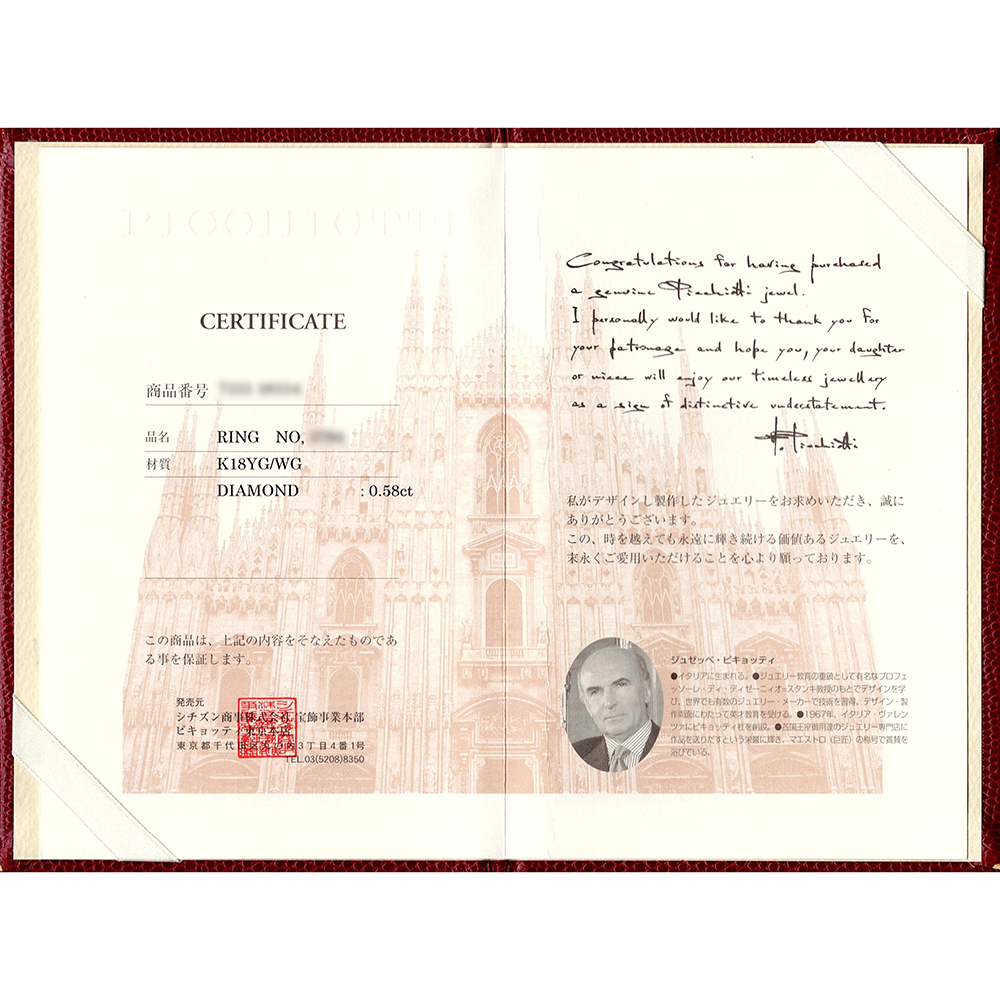 PICCHIOTTI
CERTIFICATE
商品番号
品名 RING NO,
材質 K18YG/WG
DIAMOND : 0.58ct
この商品は、上記の内容をそなえたものであ
る事を保証します。
発売元
シチズン商事株式会社 宝飾事業本部
ピキョッティ東京本店
東京都千代田区丸の内3丁目4番1号
TEL.03(5208)8350
Congratulations for having purchased
a genuine Picchiotti jewel.
I personally would like to thank you for
your patronage and hope you, your daughter
or niece will enjoy our timeless jewellery
as a sign of distinctive understatement.
Picchiotti
私がデザインし製作したジュエリーをお求めいただき、誠に
ありがとうございます。
この、時を越えても永遠に輝き続ける価値あるジュエリーを、
末永くご愛用いただけることを心より願っております。
ジュゼッペ・ピキョッティ
●イタリアに生まれる。●ジュエリー教育の重鎮として有名なプロフェ
ッソーレ・ディ・ディゼーニィオ=スタンキ教授のもとでデザインを学
び、世界でも有数のジュエリー・メーカーで技術を習得、デザイン・製
作両面にわたって英才教育を受ける。●1967年、イタリア・ヴァレン
ツァにピキョッティ社を創設。●各国王室御用達のジュエリー専門店に
作品を送りだすという栄誉に輝き、マエストロ(巨匠)の称号で賞賛を
浴びている。